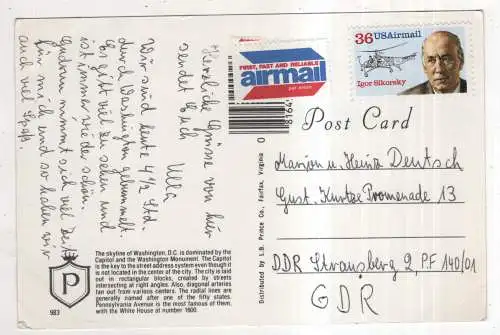 Herzliche Grüsse von hier
sendet Euch
Ulla
Wir sind heute 4 1/2 Std.
durch Washington gebummelt.
Es gibt viel zu sehen und
ist immer wieder schön.
Gudrun nimmt sich viel Zeit
für mich und so haben wir
auch viel Spaß.
FIRST, FAST AND RELIABLE
airmail
par avion
81641
0
36 USAirmail
Igor Sikorsky
Post Card
Marion u. Heinz Deutsch
Gust. Kurtze Promenade 13
DDR Strausberg 2 PF 140/01
GDR
Distributed by L.B. Prince Co., Fairfax, Virginia
P
983
The skyline of Washington, D.C. is dominated by the
Capitol and the Washington Monument. The Capitol
is the key to the street address system even though it
is not located in the center of the city. The city is laid
out in rectangular blocks, created by streets
intersecting at right angles. Also, diagonal arteries
fan out from various centers. The radial lines are
generally named after one of the fifty states.
Pennsylvania Avenue is the most famous of these,
with the White House at number 1600.